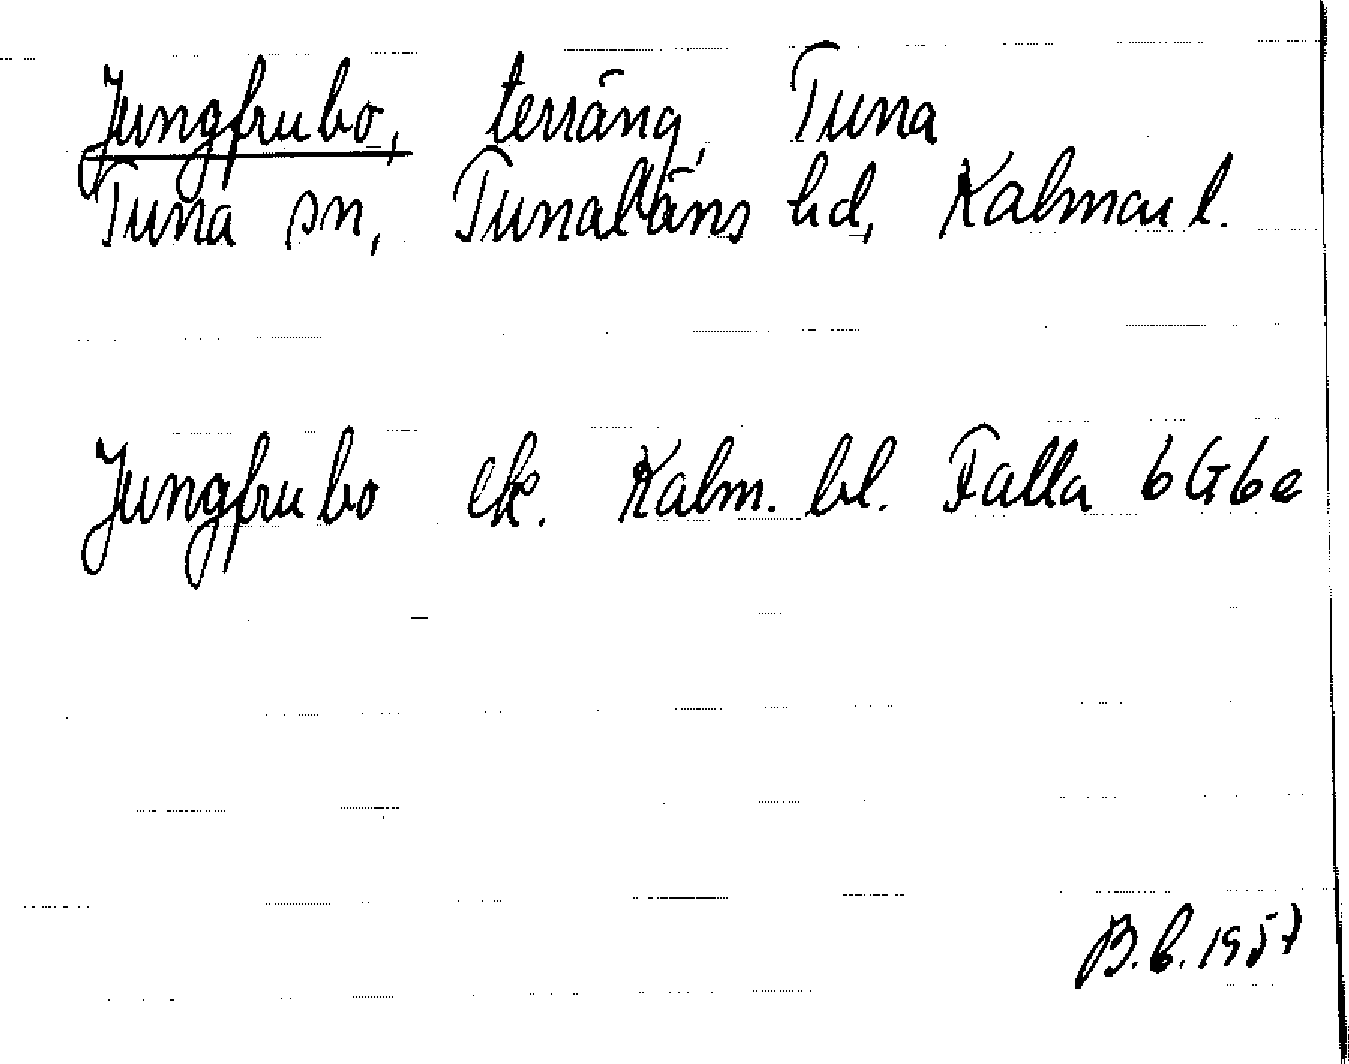 Jungfrubo, terräng, Tuna
Tuna sn, Tunaläns hd, Kalmar l.
Jungfrubo ek. Kalm. bl. Falla 6G6e
B.b. 1957